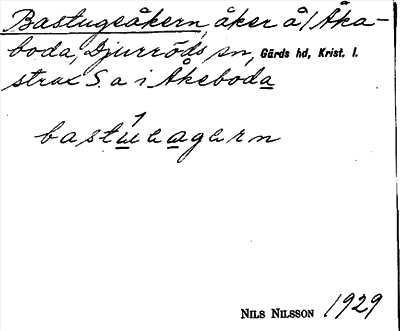 Bastugeåkern, åker å/ Åka-
boda, Djurröds sn, Gärds hd, Krist. l.
strax S. a i Åkeboda
bastueagern
NILS NILSSON 1929